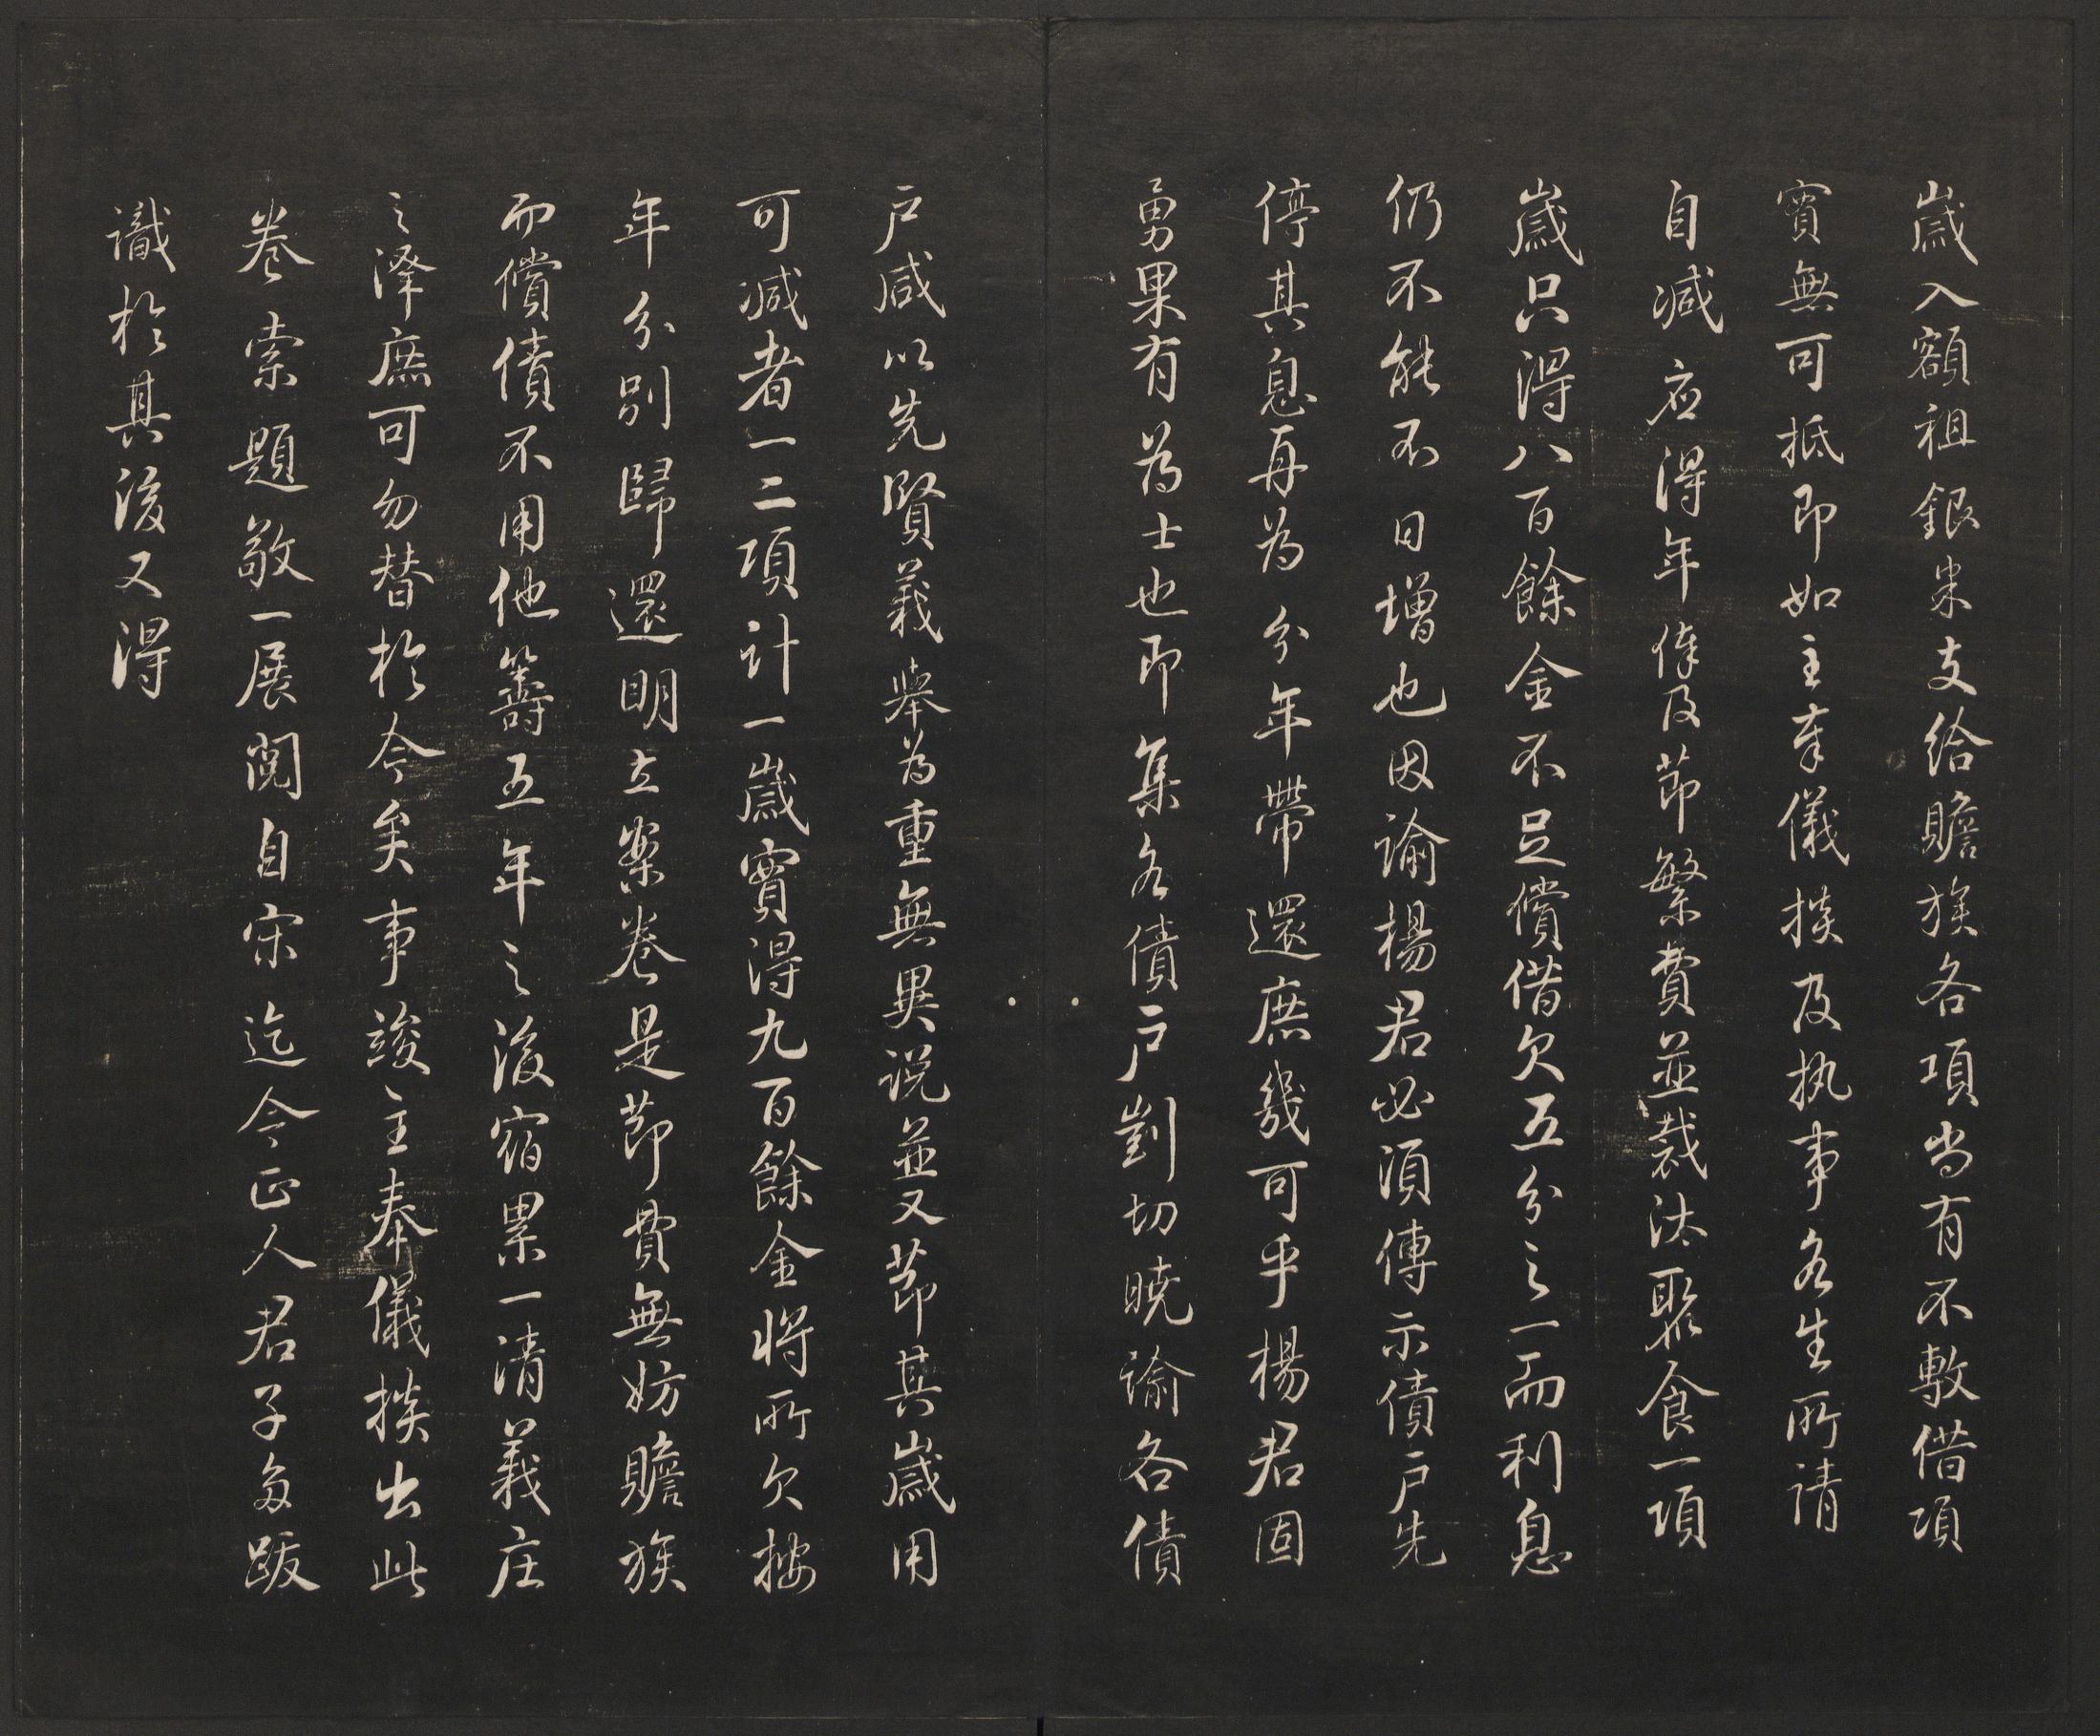 歲入額祖銀米支給贍族各項尚有不敷借項
實無可抵即如主奉儀掞及执事各生所請
自减应得年俸及節繁費並裁汰聚食一項
歲只得八百餘金不足償借欠五分之一而利息
仍不能不日增也因諭楊君必須傳示債戶先
停其息再為分年帶還庶幾可乎楊君固
勇果有為士也即集各債戶剴切曉諭各債
戶咸以先賢義舉為重無異说並又節其歲用
可减者一二項計一歲實得九百餘金将所欠按
年分別歸還明立案卷是節費無妨贍族
而償債不用他籌五年之後宿累一清義庄
之澤庶可勿替於今矣事竣主奉儀掞出此
卷索題敬一展閱自宋迄今正人君子多跋
識於其後又得